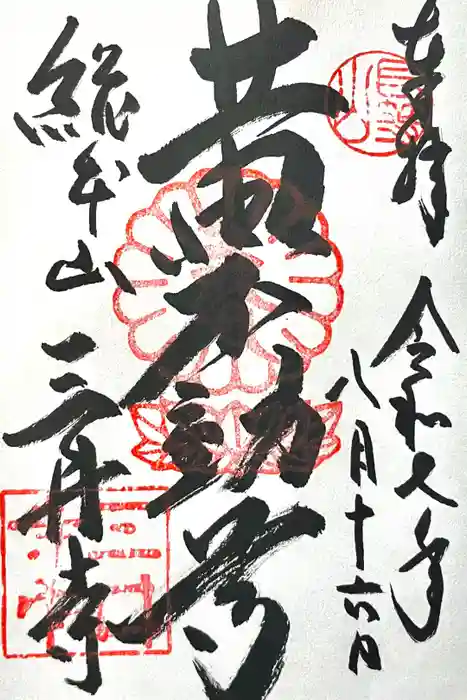 奉拝 令和七年
八月十六日
黄不動尊
総本山
三井寺